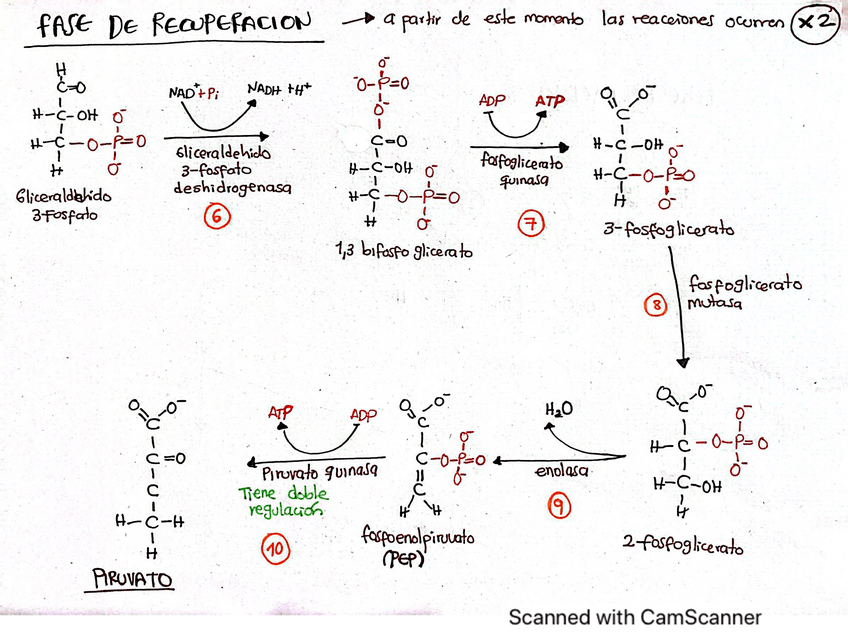 FASE DE RECUPERACION → a partir de este momento las reacciones ocurren x2
H
C=O
H-C-OH
H-C-O-P=O
O⁻
O⁻
H
Gliceraldehido
3-fosfato
NAD⁺+Pi
NADH +H⁺
Gliceraldehido
3-fosfato
deshidrogenasa
6
O⁻
⁻O-P=O
O⁻
C=O
H-C-OH
H-C-O-P=O
O⁻
O⁻
H
1,3 bifosfo glicerato
ADP
ATP
fosfoglicerato
quinasa
7
O
O⁻
C
H-C-OH
H-C-O-P=O
O⁻
O⁻
H
3-fosfoglicerato
8
fosfoglicerato
mutasa
O
O⁻
C
H-C-O-P=O
O⁻
O⁻
H-C-OH
H
2-fosfoglicerato
H₂O
enolasa
9
O
O⁻
C
C-O-P=O
O⁻
O⁻
C
H H
fosfoenolpiruvato
(PEP)
ATP
ADP
Piruvato quinasa
Tiene doble
regulación
10
O
O⁻
C
C=O
C
H-C-H
H
PIRUVATO
Scanned with CamScanner